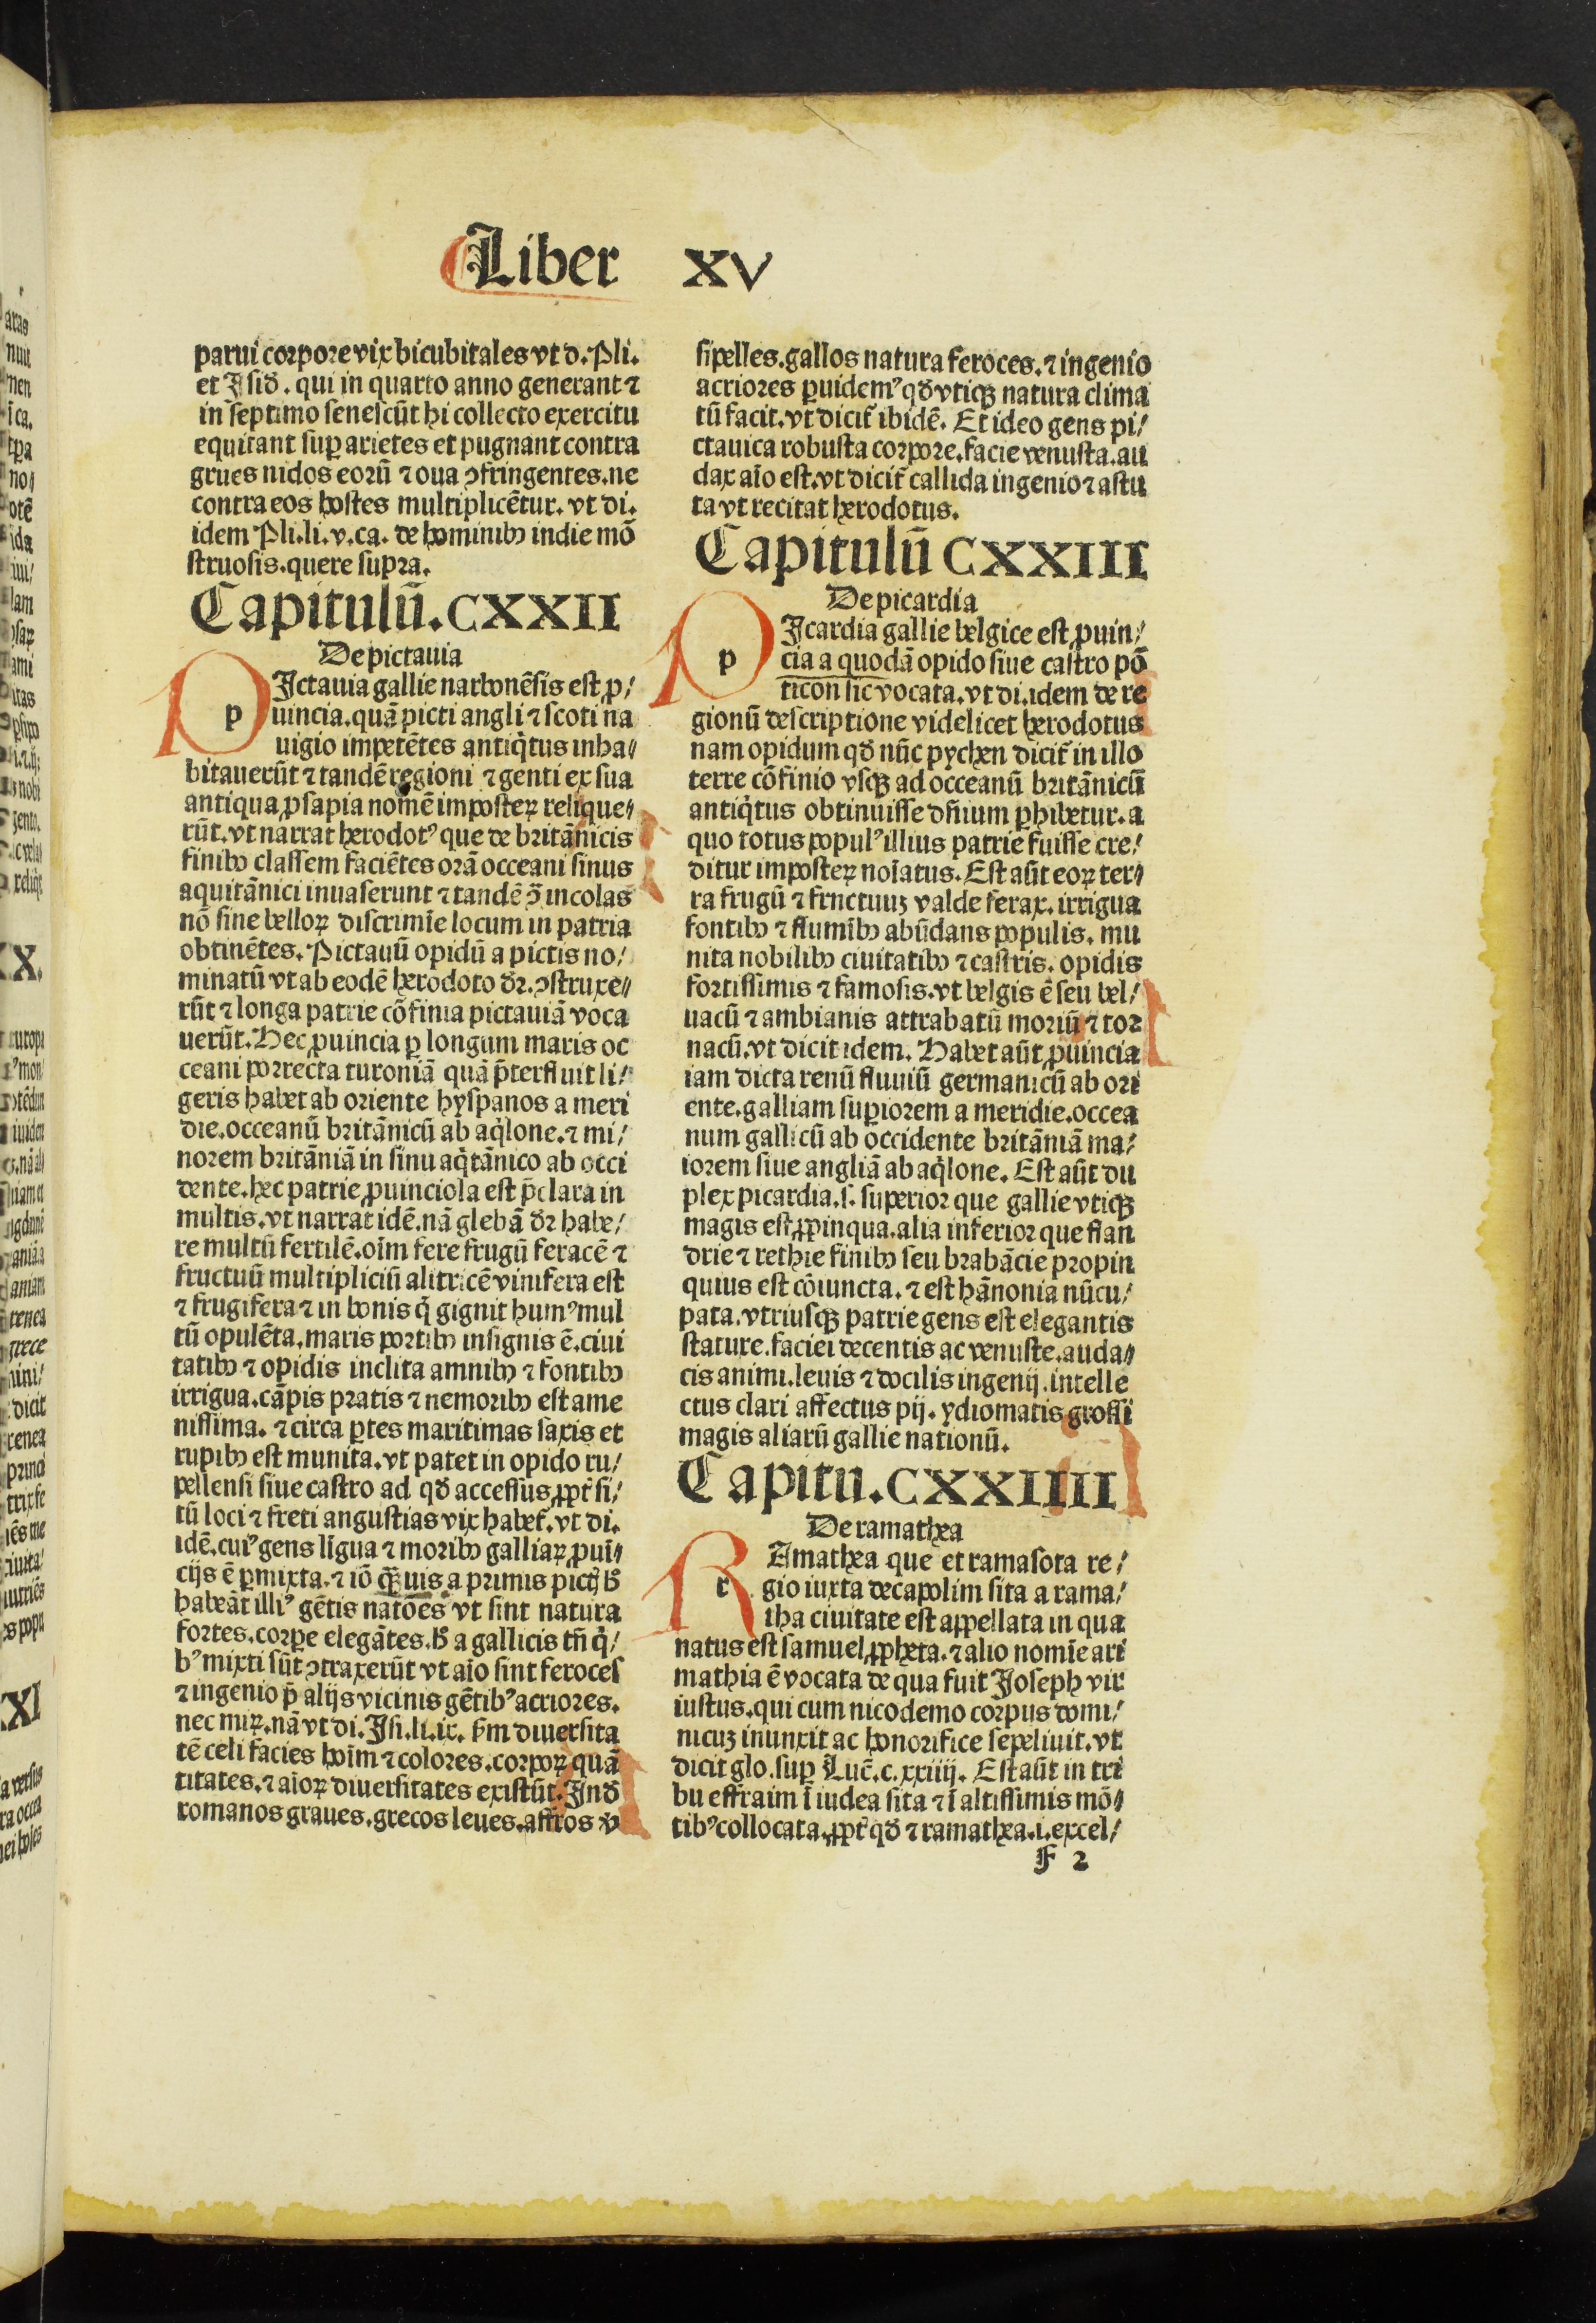 Liber XV
parui corpore vix bicubitales vt d. Pli.
et Isid̄. qui in quarto anno generant ⁊
in septimo senescūt hi collecto exercitu
equitant suꝑ arietes et pugnant contra
grues nidos eorū ⁊ oua ꝯfringentes. ne
contra eos hostes multiplicētur. vt di.
idem Pli. li. v. ca. de hominibꝫ indie mō
struosis. quere supra.
Capitulū. CXXII
De pictauia
p
Ictauia gallie narbonēsis est ꝓ/
uincia. quā picti angli ⁊ scoti na
uigio impetētes antiq̇tus inha⸗
bitauerūt ⁊ tandē regioni ⁊ genti ex sua
antiqua ꝓsapia nomē imposteꝝ relique⸗
rūt. vt narrat herodotꝰ que de britānicis
finibꝫ classem faciētes orā occeani sinus
aquitānici inuaserunt ⁊ tandē ꝯ̄ incolas
nō sine belloꝝ discrimīe locum in patria
obtinētes. Pictauū opidū a pictis no/
minatū vt ab eodē herodoto dr̄. ꝯstruxe⸗
rūt ⁊ longa patrie cōfinia pictauiā voca
uerūt. Hec ꝓuincia ꝑ longum maris oc
ceani porrecta turoniā quā p̄terfluit li/
geris habet ab oriente hyspanos a meri
die. occeanū britānicū ab aq̇lone. ⁊ mi/
norem britāniā in sinu aq̇tānico ab occi
dente. hec patrie ꝓuinciola est p̄clara in
multis. vt narrat idē. nā glebā dr̄ habe/
re multū fertilē. oīm fere frugū feracē ⁊
fructuū multipliciū alitricē vinifera est
⁊ frugifera ⁊ in bonis q̄ gignit humꝰ mul
tū opulēta. maris portibꝫ insignis ē. ciui
tatibꝫ ⁊ opidis inclita amnibꝫ ⁊ fontibꝫ
irrigua. cāpis pratis ⁊ nemoribꝫ est ame
nissima. ⁊ circa ꝑtes maritimas saxis et
rupibꝫ est munita. vt patet in opido ru/
pellensi siue castro ad qd̄ accessus ꝓpt̄ si/
tū loci ⁊ freti angustias vix habet̄. vt di.
idē. cuiꝰ gens līgua ⁊ moribꝫ galliaꝝ ꝓuī⸗
cijs ē ꝑmixta. ⁊ iō q̄ꝫuis a primis pictꝭ ꝟ
habeāt illiꝰ gētis natōes vt sint natura
fortes. corꝑe elegātes. ꝟ a gallicis tn̄ q̇/
bꝰ mixti sūt ꝯtraxerūt vt aīo sint feroces
⁊ ingenio p̄ alijs vicinis gētibꝰ acriores.
nec miꝝ. nā vt di. Isi. li. ix. ẜm diuersita
tē celi facies hoīm ⁊ colores. corpoꝝ quā
titates. ⁊ aīoꝝ diuersitates existūt. Ind̄
romanos graues. grecos leues. affros ꝟ
sipelles. gallos natura feroces. ⁊ ingenio
acriores ꝑuidemꝰ qd̄ vtiqꝫ natura clima
tū facit. vt dicit̄ ibidē. Et ideo gens pi/
ctauica robusta corpore. facie venusta. au
dax aīo est. vt dicit̄ callida ingenio ⁊ astu
ta vt recitat herodotus.
Capitulū CXXIII
De picardia
p
Icardia gallie belgice est ꝓuin/
cia a quodā opido siue castro pō
ticon sic vocata. vt di. idem de re
gionū descriptione videlicet herodotus
nam opidum qd̄ nūc pychen dicit̄ in illo
terre cōfinio vsqꝫ ad occeanū britānicū
antiq̇tus obtinuisse dn̄ium ꝑhibetur. a
quo totus populꝰ illius patrie fuisse cre/
ditur imposteꝝ noīatus. Est aūt eoꝝ ter⸗
ra frugū ⁊ frnctuuꝫ valde ferax. irrigua
fontibꝫ ⁊ flumībꝫ abūdans populis. mu
nita nobilibꝫ ciuitatibꝫ ⁊ castris. opidis
fortissimis ⁊ famosis. vt belgis ē seu bel/
uacū ⁊ ambianis attrabatū moriū ⁊ tor
nacū. vt dicit idem. Habet aūt ꝓuincia
iam dicta renū fluuiū germanicū ab ori
ente. galliam suꝑiorem a meridie. occea
num gallicū ab occidente britāniā ma/
iorem siue angliā ab aq̇lone. Est aūt du
plex picardia. s. superior que gallie vtiqꝫ
magis est ꝓpinqua. alia inferior que flan
drie ⁊ rethie finibꝫ seu brabācie propin
quius est cōiuncta. ⁊ est hānonia nūcu/
pata. vtriusqꝫ patrie gens est elegantis
stature. faciei decentis ac venuste. auda⸗
cis animi. leuis ⁊ docilis ingenij. intelle
ctus clari affectus pij. ydiomatis grossi
magis aliarū gallie nationū.
Capitu. CXXIIII
De ramathea
r
Amathea que et ramasota re/
gio iuxta decapolim sita a rama/
tha ciuitate est appellata in qua
natus est samuel ꝓpheta. ⁊ alio nomīe ari
mathia ē vocata de qua fuit Joseph vir
iustus. qui cum nicodemo corpus domi/
nicuꝫ inunxit ac honorifice sepeliuit. vt
dicit glo. suꝑ Luc̄. c. xxiiij. Est aūt in tri
bu effraim ī iudea sita ⁊ ī altissimis mō⸗
tibꝰ collocata. ꝓpt̄ qd̄ ⁊ ramathea. i. excel/
F 2